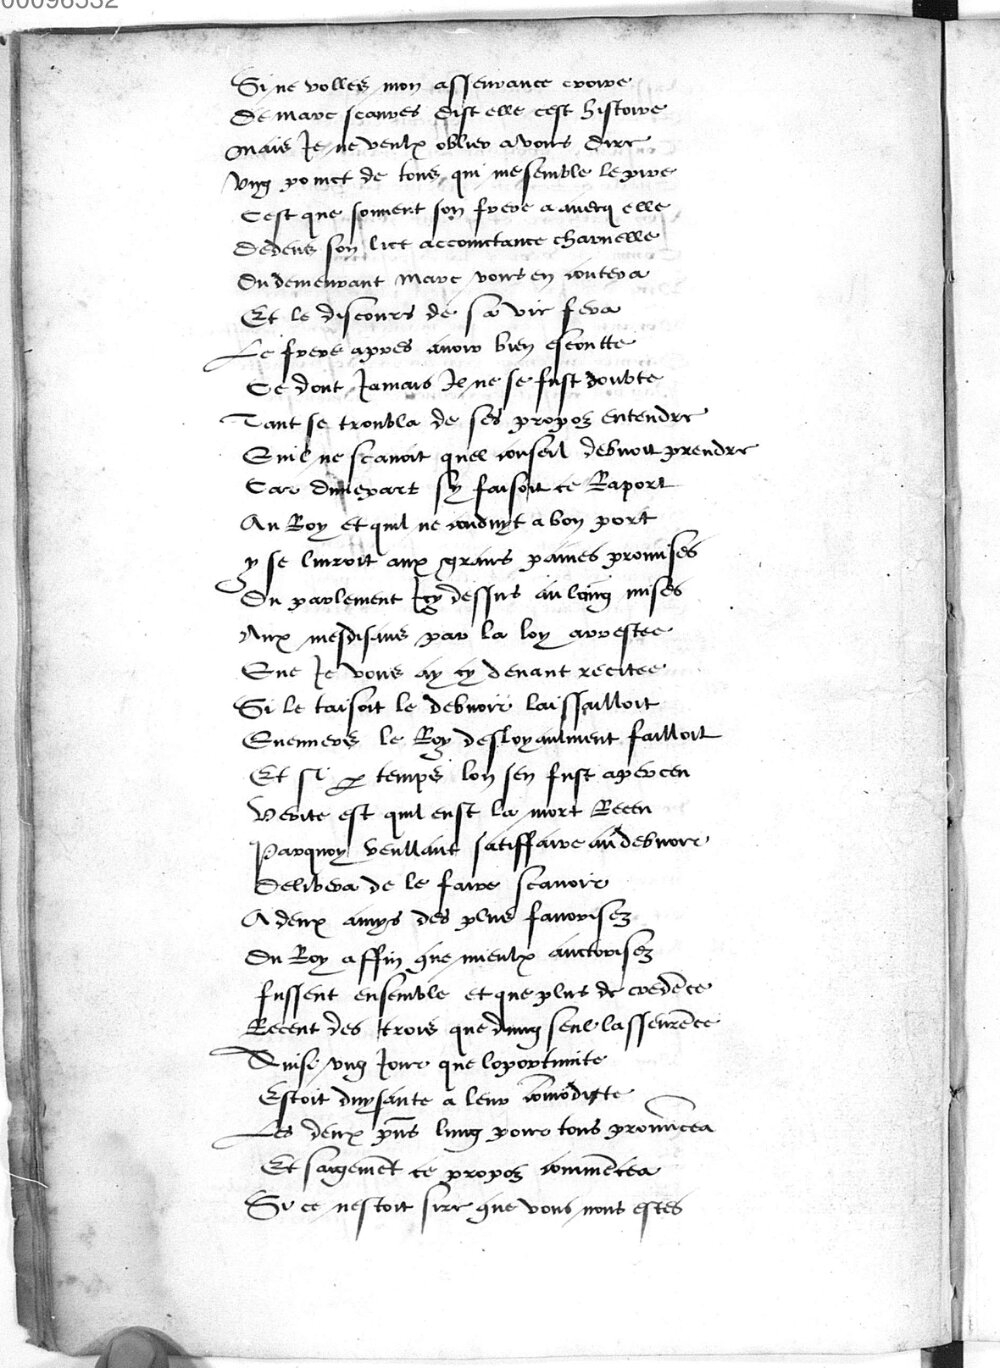 00096532
Si ne volles mon asseurance croire
De marc scaures dist elle cest histoire
Mais Je ne veulx oblier a vous dire
Ung poinct de tous qui me semble le pire
Cest que souuent son frere a auecq elle
Dedens son lict accoinctance charnelle
Du demeurant Marc vous en contera
Et le discours de sa vie fera
Le frere apres auoir bien escoutte
Ce dont Jamais Il ne se fust doubte
Tant se troubla de ses propoz entendre
Quil ne scauoit quel conseil debuoit prendre
Car dune part sy faisoit ce Raport
Au Roy et quil ne conduyt a bon port
y se liuroit aux grans paines promises
Du parlement Icy dessus au long mises
Aux mesdisans par la loy arrestee
Que Je vous ay cy deuant recitee
Si le taisoit le debuoir laissailloit
Enuers le Roy desloyaulment failloit
Et si p temps lon sen fust aperceu
Verite est quil eust la mort Receu
Parquoy veullant satiffaire au debuoir
Delibera de le faire scauoir
A deux amys des plus fauorisez
Du Roy affin que mieulx auctorisez
fussent ensemble et que plus de credēce
Recent des trois que dung seul lasseurēce
Auise ung Jour que loportunite
Estoit duysante a leur cōmodite
Les deux pñs lung pour tous pronuncea
Et sagemēt ce propoz commēcea
Si ce nestoit sire que vous nous estes